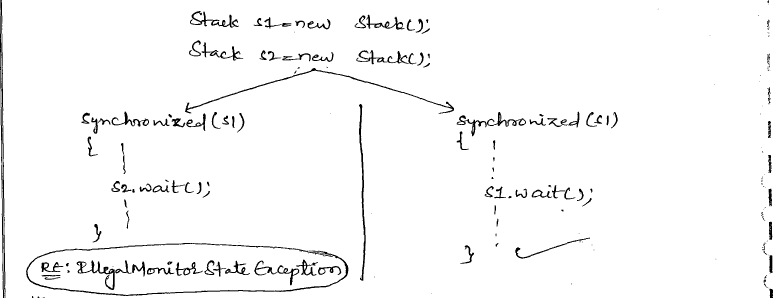 Stack s1=new Stack();
Stack s2=new Stack();
synchronized(s1)
{
s2.wait();
}
RE: IllegalMonitorStateException
synchronized(s1)
{
s1.wait();
}